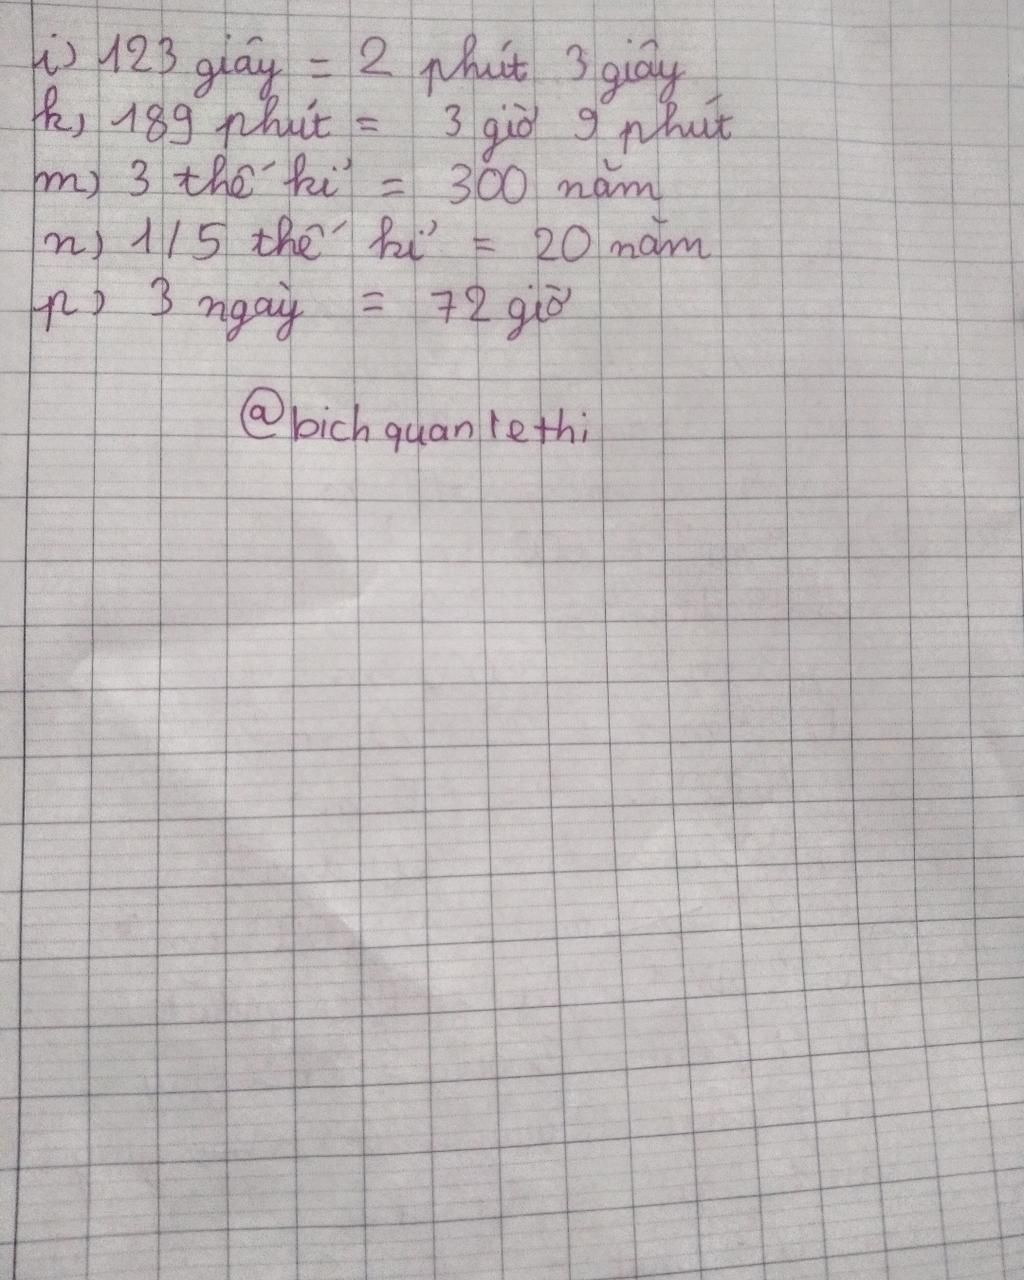 i) 123 giây = 2 phút 3 giây
k) 189 phút = 3 giờ 9 phút
m) 3 thế kỉ = 300 năm
n) 1/5 thế kỉ = 20 năm
p) 3 ngày = 72 giờ
@bichquanlethi